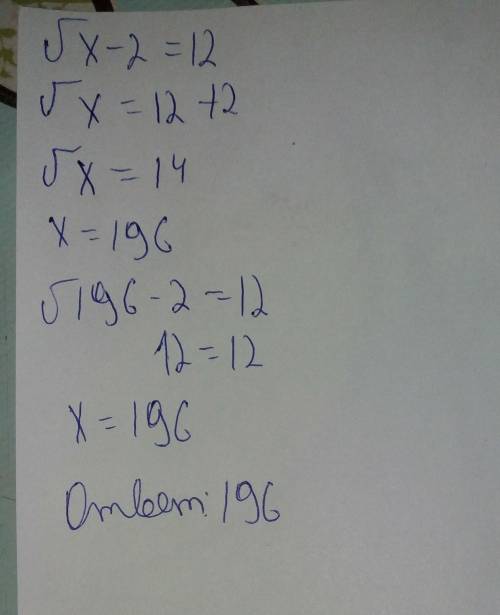 √x - 2 = 12
√x = 12 + 2
√x = 14
x = 196
√196 - 2 = 12
12 = 12
x = 196
Ответ: 196